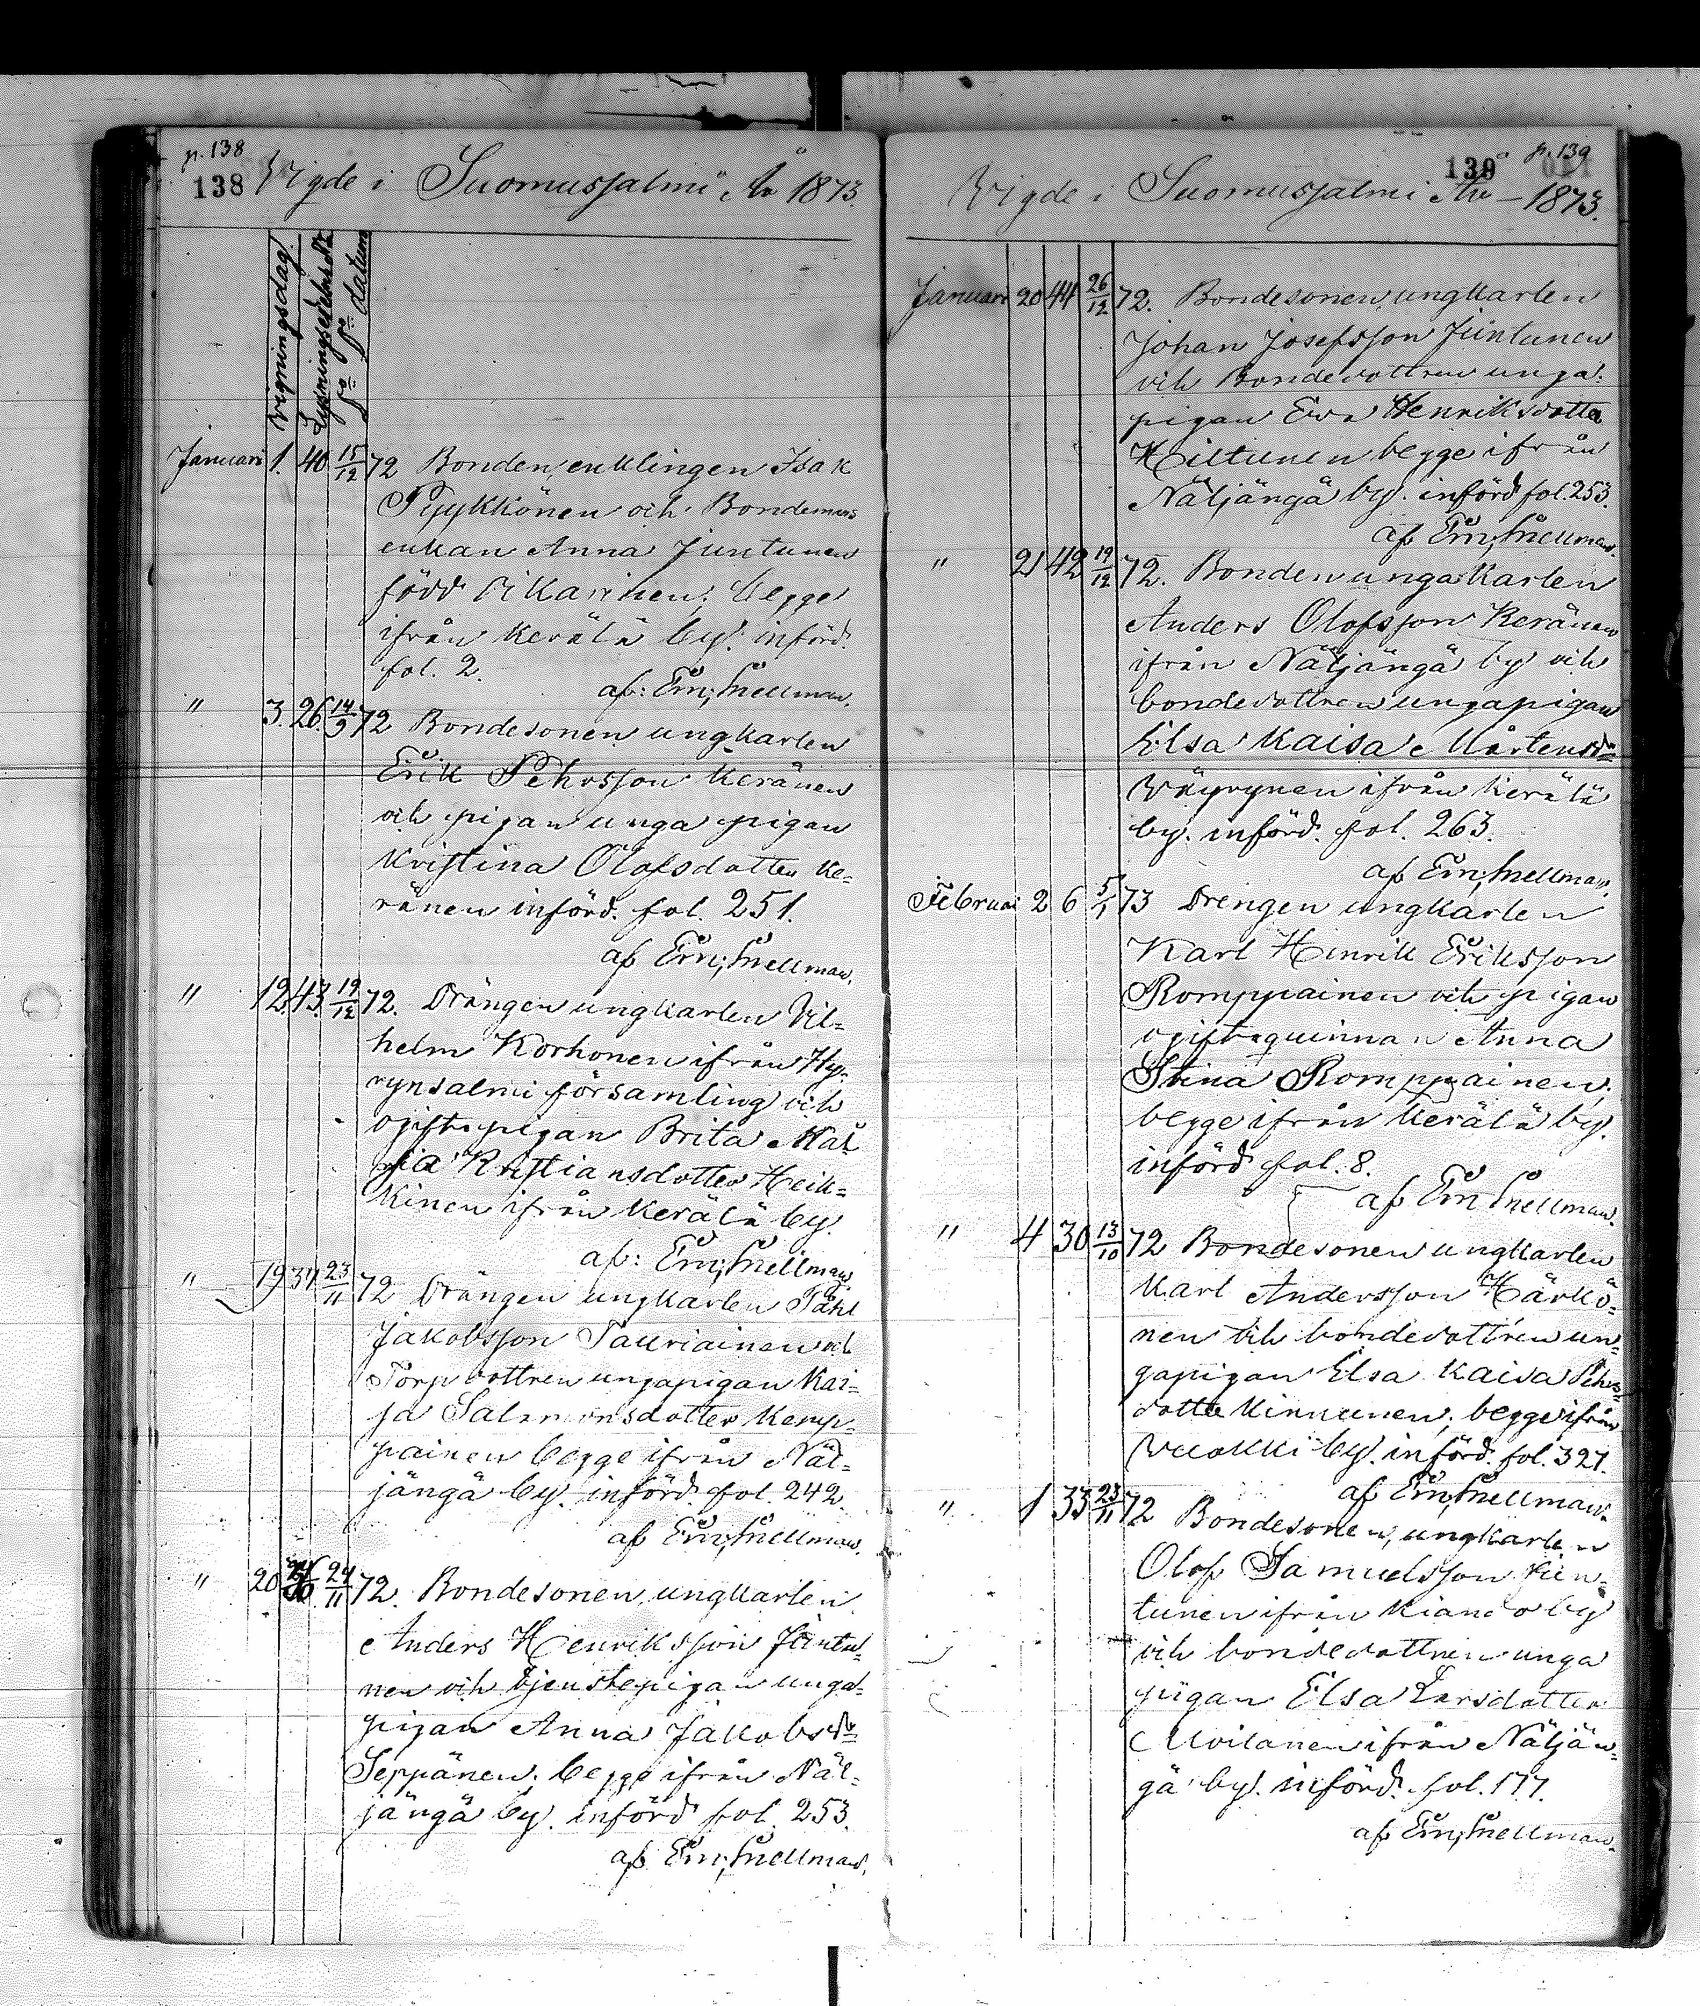 p. 138
138 Vigde i Suomussalmi År 1873.
Vigningsdag
Lysningssedelns No
Do Do datum
Januari 1. 40 15/12 72 Bonden, enklingen Isak
Pyykkönen och Bondemans
enkan Anna Juntunen
född Pikarinen; begge
ifrån Kerälä by. införd.
fol. 2.
af: Ern; Snellman.
" 3. 26. 14/9 72 Bondesonen ungkarlen
Erik Pehrsson Keränen
och pigan unga pigan
Kristina Olofsdotter Ke=
ränen införd. fol. 251.
af Ern; Snellman.
" 12. 43. 19/12 72. Drängen ungkarlen Vil=
helm Korhonen ifrån Hy=
rynsalmi församling och
ogift pigan Brita Mar
ia Kristiansdotter Heik=
kinen ifrån Kerälä by.
af: Ern; Snellman.
" 19 37 23/11 72 Drängen ungkarlen Påhl
Jakobsson Tauriainen och
Torpdottren ungapigan Kai=
sa Salomonsdotter Kemp=
painen begge ifrån Näl=
jängä by. införd. fol. 242.
af Ern; Snellman.
" 20 24/11 72. Bondesonen, ungkarlen
Anders Henriksson Juntu=
nen och tjenstepigan unga=
pigan Anna Jakobsdr
Seppänen; begge ifrån Näl=
jängä by. införd fol. 253.
af Ern; Snellman.
p. 139
139
Vigde i Suomussalmi År 1873.
Januari 20 44 26/12 72. Bondesonen, ungkarlen
Johan Josefsson Juntunen
och Bondedottren unga=
pigan Eva Henriksdotter
Kiltunen begge ifrån
Näljängä by. införd fol. 253.
af Ern; Snellman.
" 21 42 19/12 72. Bonden ungakarlen
Anders Olofsson Keränen
ifrån Näljängä by och
bondedottren ungapigan
Elsa Kaisa Mårtensdr
Väyrynen ifrån Kerälä
by. införd. fol. 263.
af Ern; Snellman.
Februari 2 6 5/1 73 Drengen ungkarlen
Karl Henrik Eriksson
Romppainen och pigan
ogift quinnan Anna
Stina Romppainen;
begge ifrån Kerälä by.
införd fol. 8.
af Ern Snellman.
" 4 30 13/10 72 Bondesonen ungkarlen
Karl Andersson Härkö=
nen och bondedottren un=
gapigan Elsa Kaisa Pehrs=
dotter Kinnunen; begge ifrån
Vuokki by. införd. fol. 327.
af Ern; Snellman.
" 1 33 23/11 72 Bondesonen, ungkarlen
Olof Samuelsson Jun=
tunen ifrån Kiando by
och bondedottren unga
pigan Elsa Larsdotter
Moilanen ifrån Näljän=
gä by. införd. fol. 177.
af Ern; Snellman.